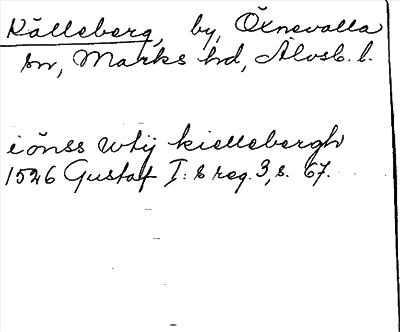 Källeberg, by, Öxnevalla
sn, Marks hd, Älvsb. l.
iönss utij kiellebergh
1526 Gustaf I:s reg. 3, s. 67.